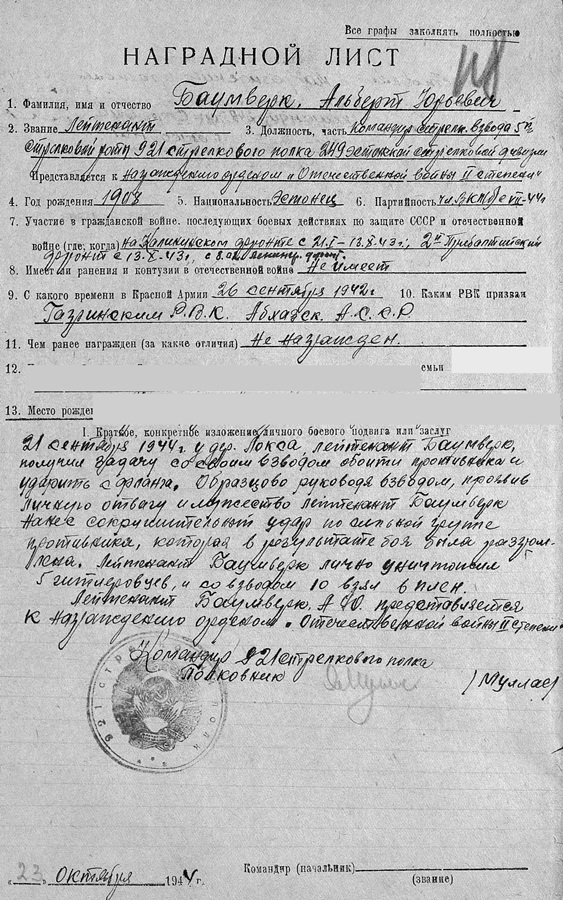 Все графы заколнять полностью
НАГРАДНОЙ ЛИСТ
1. Фамилия, имя и отчество Баумверк, Альберт Юрьевич
2. Звание Лейтенант 3. Должность, часть Командир стрелк. взвода 5й
стрелковой роты 921 стрелкового полка 249 эстонской стрелковой дивизии
Представляется к награждению орденом „Отечественной войны II степени"
4. Год рождения 1908 5. Национальность Эстонец 6. Партийность
7. Участие в гражданской войне, последующих боевых действиях по защите СССР и отечественной
войне (где, когда) на Калининском фронте с 21.I–13.X.43г., 2й Прибалтийский
фронт с 13.X.43г., с
8. Имеет ли ранения и контузии в отечественной войне Не имеет
9. С какого времени в Красной Армии 26 сентября 1942г 10. Каким РВК призван
Р.В.К. Абхазск. А.С.С.Р.
11. Чем ранее награжден (за какие отличия) Не награжден.
12. семьи
13. Место рожде
I. Краткое, конкретное изложение личного боевого подвига или заслуг
21 сентября 1944 г. у дер. Локса лейтенант Баумверк,
получил задачу со своим взводом обойти противника и
ударить с фланга. Образцово руководя взводом, проявив
личную отвагу и мужество лейтенант Баумверк
нанес сокрушительный удар по сильной группе
противника, которая в результате боя была разгром-
лена. Лейтенант Баумверк лично уничтожил
5 гитлеровцев, и со взводом 10 взял в плен.
Лейтенант Баумверк, А.Ю. представляется
к награждению орденом „Отечественной войны II степени"
Командир 921 стрелкового полка
Полковник (Муллас)
921 СТРЕЛК ПОЛК
„23" октября 1944 г. Командир (начальник)
(звание)